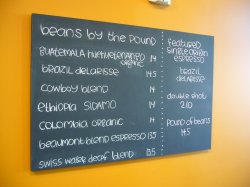 beans by the pound
GUATEMALA HUEHUETENANGO ORGANIC 14
BRAZIL DELARISSE 14.5
COWBOY BLEND 14
ETHIOPIA SIDAMO 14
COLOMBIA ORGANIC 14
BEAUMONT BLEND ESPRESSO 13.5
SWISS WATER DECAF BLEND 13.5
featured
single origin
espresso
BRAZIL
DELARISSE
double shot
2.10
POUND OF BEANS
14.5